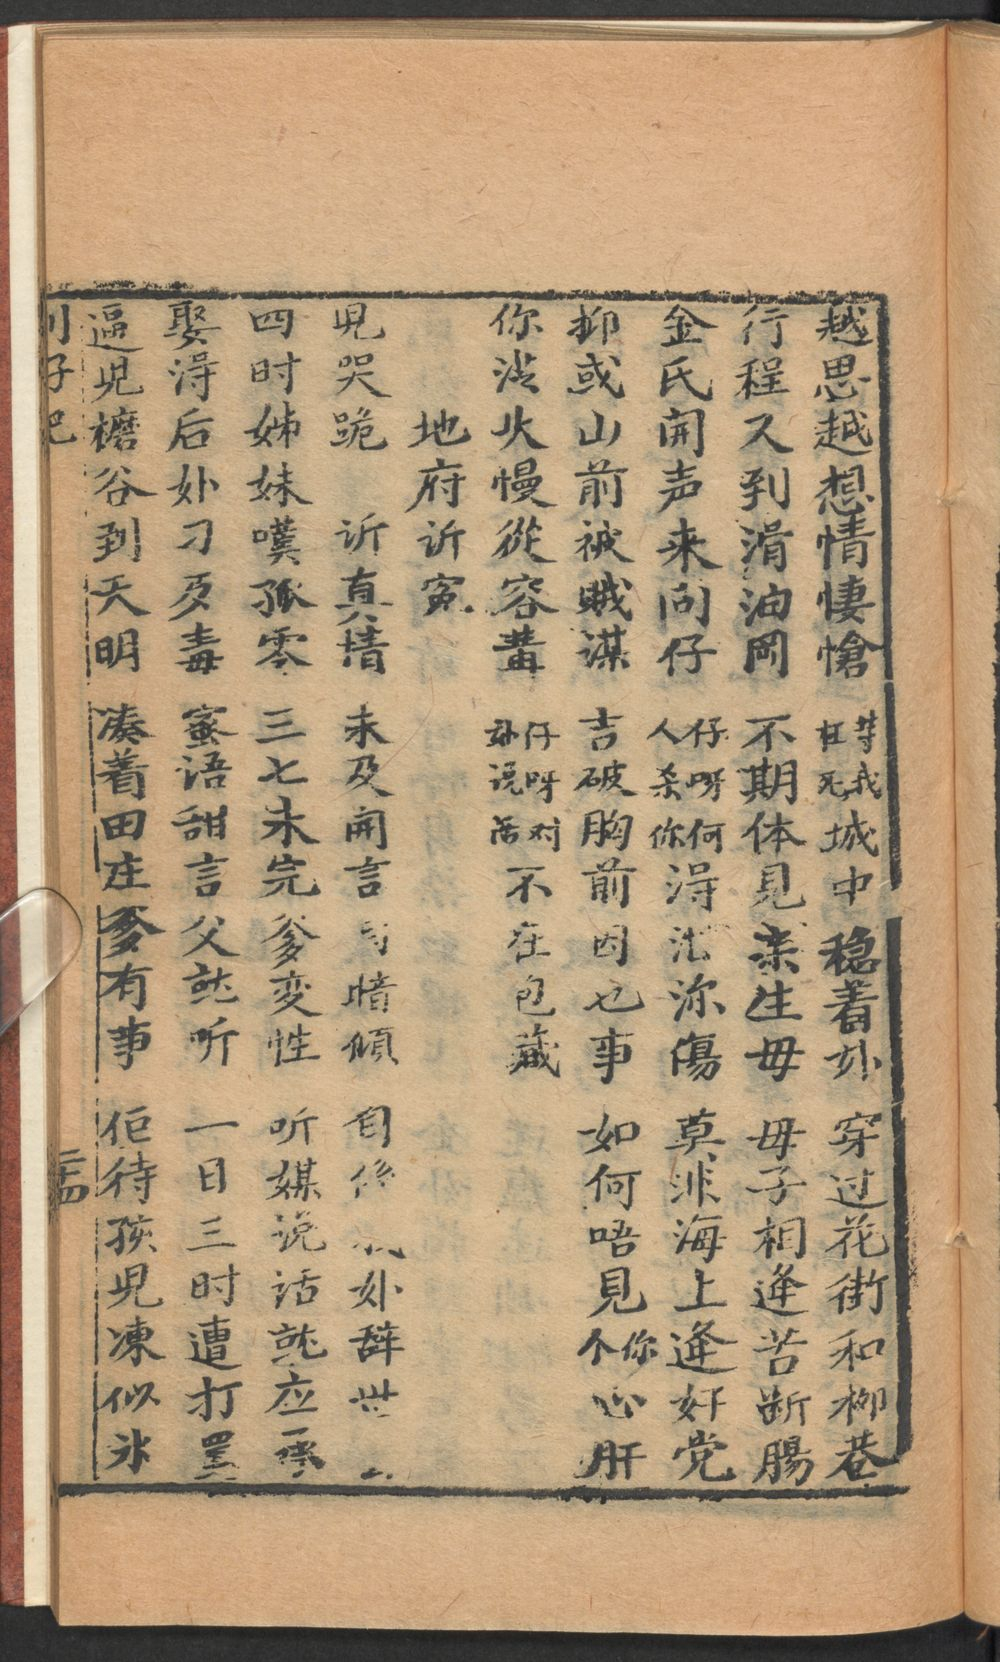 越思越想情悽愴 等我枉死城中穏着外 穿过花街和柳巷
行程又到滑油岡 不期体見亲生毋 毋子相逢苦断腸
金氏開声来问仔 仔呀何人杀你淂沈渁傷 莫非海上逢奸党
抑或山前被賊謀 吉破胸前因乜事 如何唔見你个心肝
你淡火慢從容黄 仔呀对奶说落不在包藏
地府诉寃
児哭跪 诉真情 未及開言暗傾 自従外辞世
四时姊妹嘆孤零 三七未完爹変性 听媒说话就应承
娶淂后外刁歹毒 蜜语甜言父就听 一日三时遭打罵
逼児檐谷到天明 凑着田庄爹有事 佢待孩児凍似氷
二十四